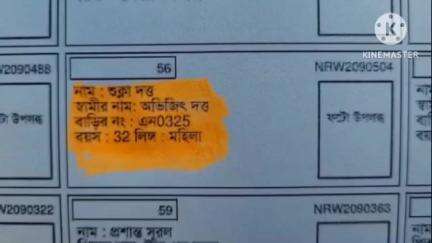 KINEMASTER
W2090488
56
NRW2090504
নাম : শুক্লা দত্ত
স্বামীর নাম: অভিজিৎ দত্ত
বাড়ির নং : এন0325
বয়স : 32 লিঙ্গ : মহিলা
টো উপলব্ধ
ফটো উপলব্ধ
W2090322
59
NRW2090363
নাম : প্রশান্ত সুরল